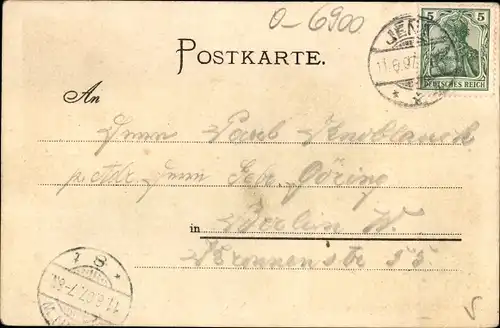 O-6900
POSTKARTE.
JENA
11.6.07
5 5
DEUTSCHES REICH
An
Herrn Carl Knoblauch
p. Adr. Herrn Gebr. Göring
in Berlin W.
Kronenstr 55
11.6.07.7-8